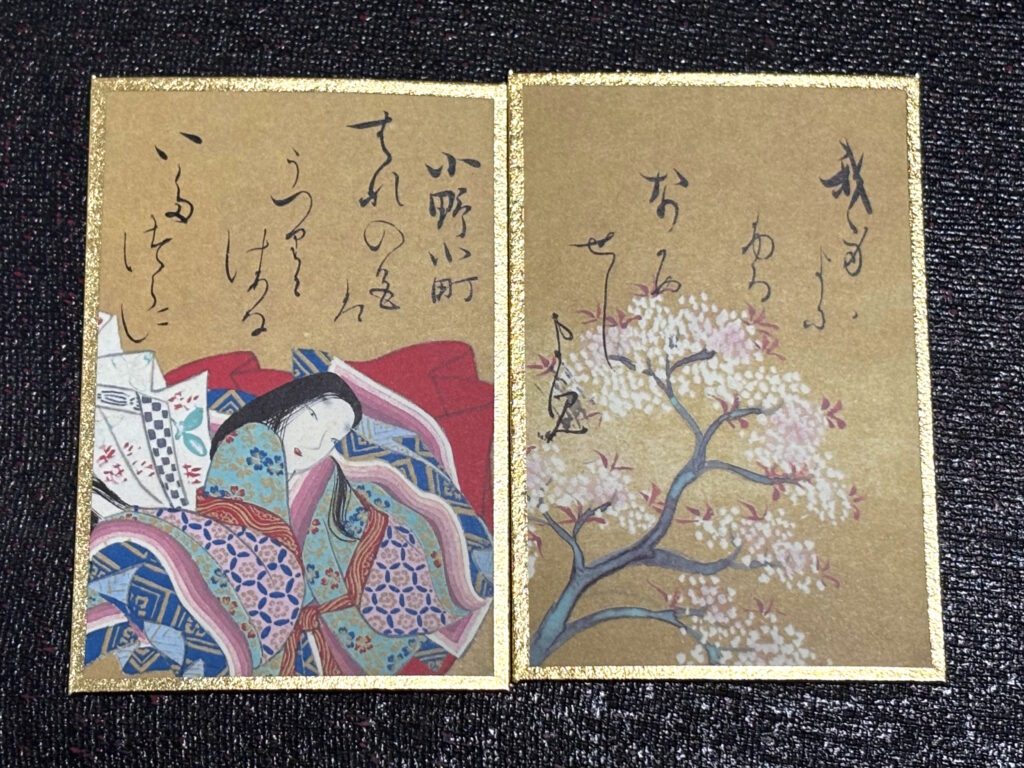 小野小町
はなの色は
うつりに
けりな
いた
つらに
我身よに
ふる
なかめ
せし
まに